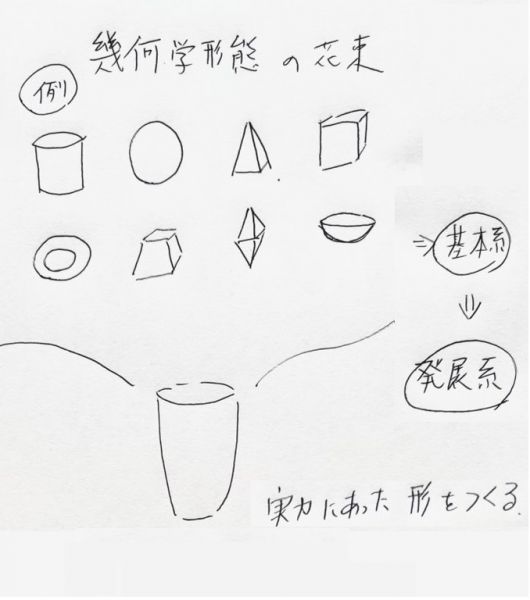 幾何学形態の花束
例
基本系
発展系
実力にあった形をつくる.